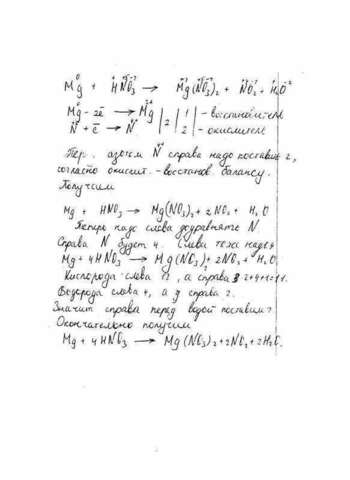 Mg⁰ + H⁺N⁺⁵O₃⁻² → Mg⁺²(N⁺⁵O₃⁻²)₂ + N⁺⁴O₂⁻² + H₂⁺O⁻²
Mg⁰ - 2ē → Mg²⁺ | 2 | 1 | 1 - восстановитель
N⁺⁵ + ē → N⁺⁴ | 2 | 2 - окислитель
Пер. азотом N⁺⁴ справа надо поставить 2,
согласно окислит.-восстанов. балансу.
Получим
Mg + HNO₃ → Mg(NO₃)₂ + 2NO₂ + H₂O
Теперь надо слева доуравнять N
Справа N будет 4. Слева тоже надо 4
Mg + 4HNO₃ → Mg(NO₃)₂ + 2NO₂ + H₂O.
Кислорода слева 12, а справа
Водорода слева 4, а справа 2.
Значит справа перед водой поставим 2
Окончательно получим
Mg + 4HNO₃ → Mg(NO₃)₂ + 2NO₂ + 2H₂O.